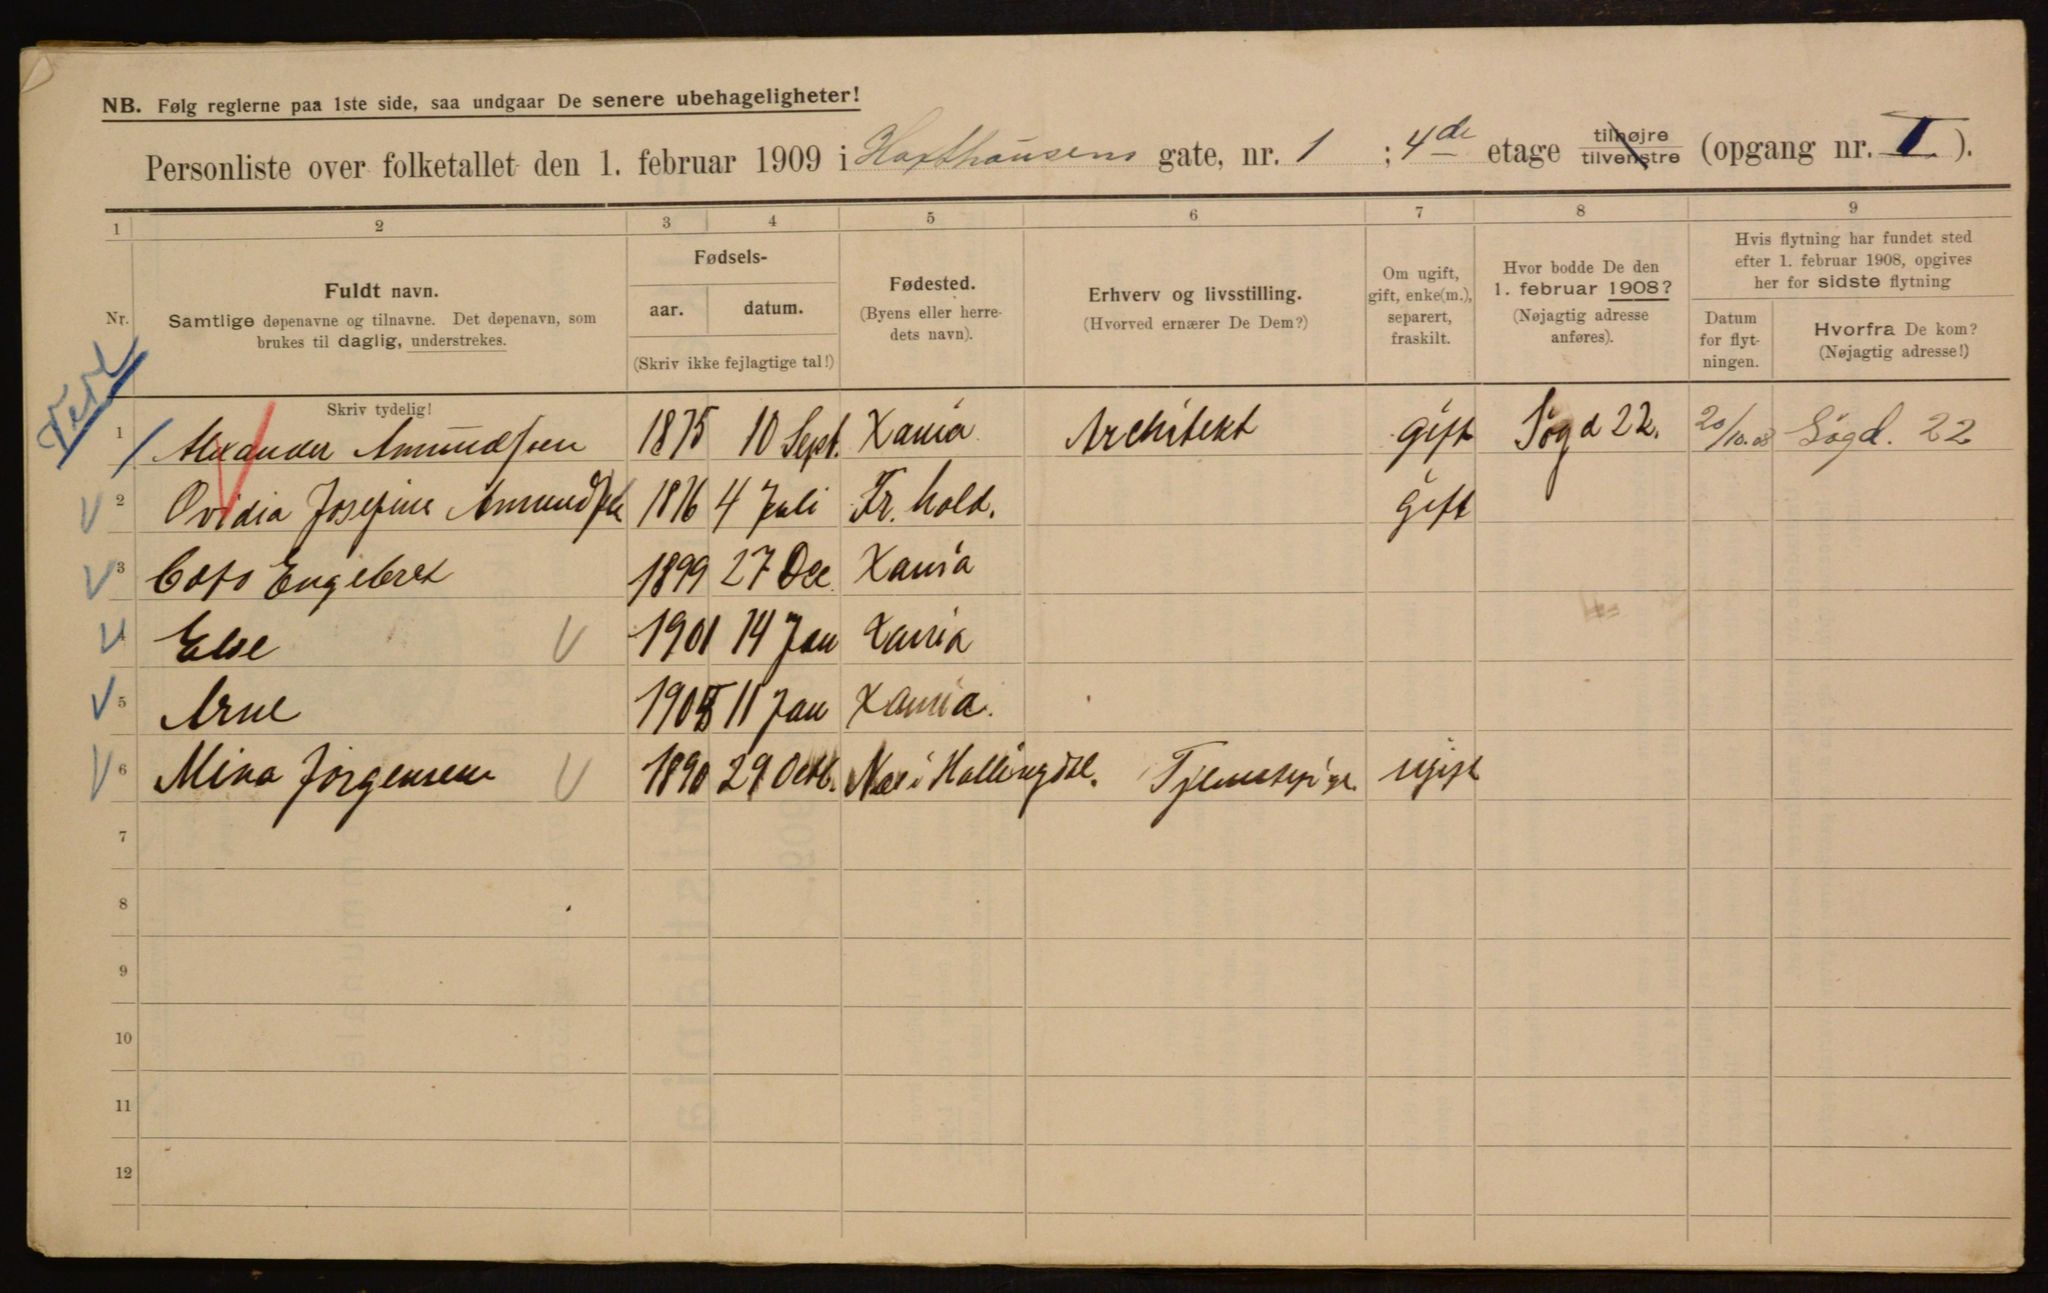 NB. Følg reglerne paa 1ste side, saa undgaar De senere ubehageligheter!
Personliste over folketallet den 1. februar 1909 i Haxthausens gate, nr. 1 ; 4de etage tilhøjre tilvenstre (opgang nr. I).
1 2 3 4 5 6 7 8 9
Nr.
Fuldt navn.
Samtlige døpenavne og tilnavne. Det døpenavn, som
brukes til daglig, understrekes.
Fødsels-
aar. datum.
(Skriv ikke fejlagtige tal!)
Fødested.
(Byens eller herre-
dets navn).
Erhverv og livsstilling.
(Hvorved ernærer De Dem?)
Om ugift,
gift, enke(m.),
separert,
fraskilt.
Hvor bodde De den
1. februar 1908?
(Nøjagtig adresse
anføres).
Hvis flytning har fundet sted
efter 1. februar 1908, opgives
her for sidste flytning
Datum
for flyt-
ningen.
Hvorfra De kom?
(Nøjagtig adresse!)
Skriv tydelig!
1 Alexander Amundsen 1875 10 Sept. Xania Architekt gift Søgd 22. 20/10.08 Søgd. 22
2 Ovidia Josefine Amundsen 1876 4 Juli Fr. hold. gift
3 Engebret 1899 27 Dec. Xania
4 Else 1901 14 Jan Xania
5 Arne 11 Jan Xania.
6 Mina Jørgensen 1890 29 Octb. Næs i Hallingdal. Tjenestepige ugift
7
8
9
10
11
12